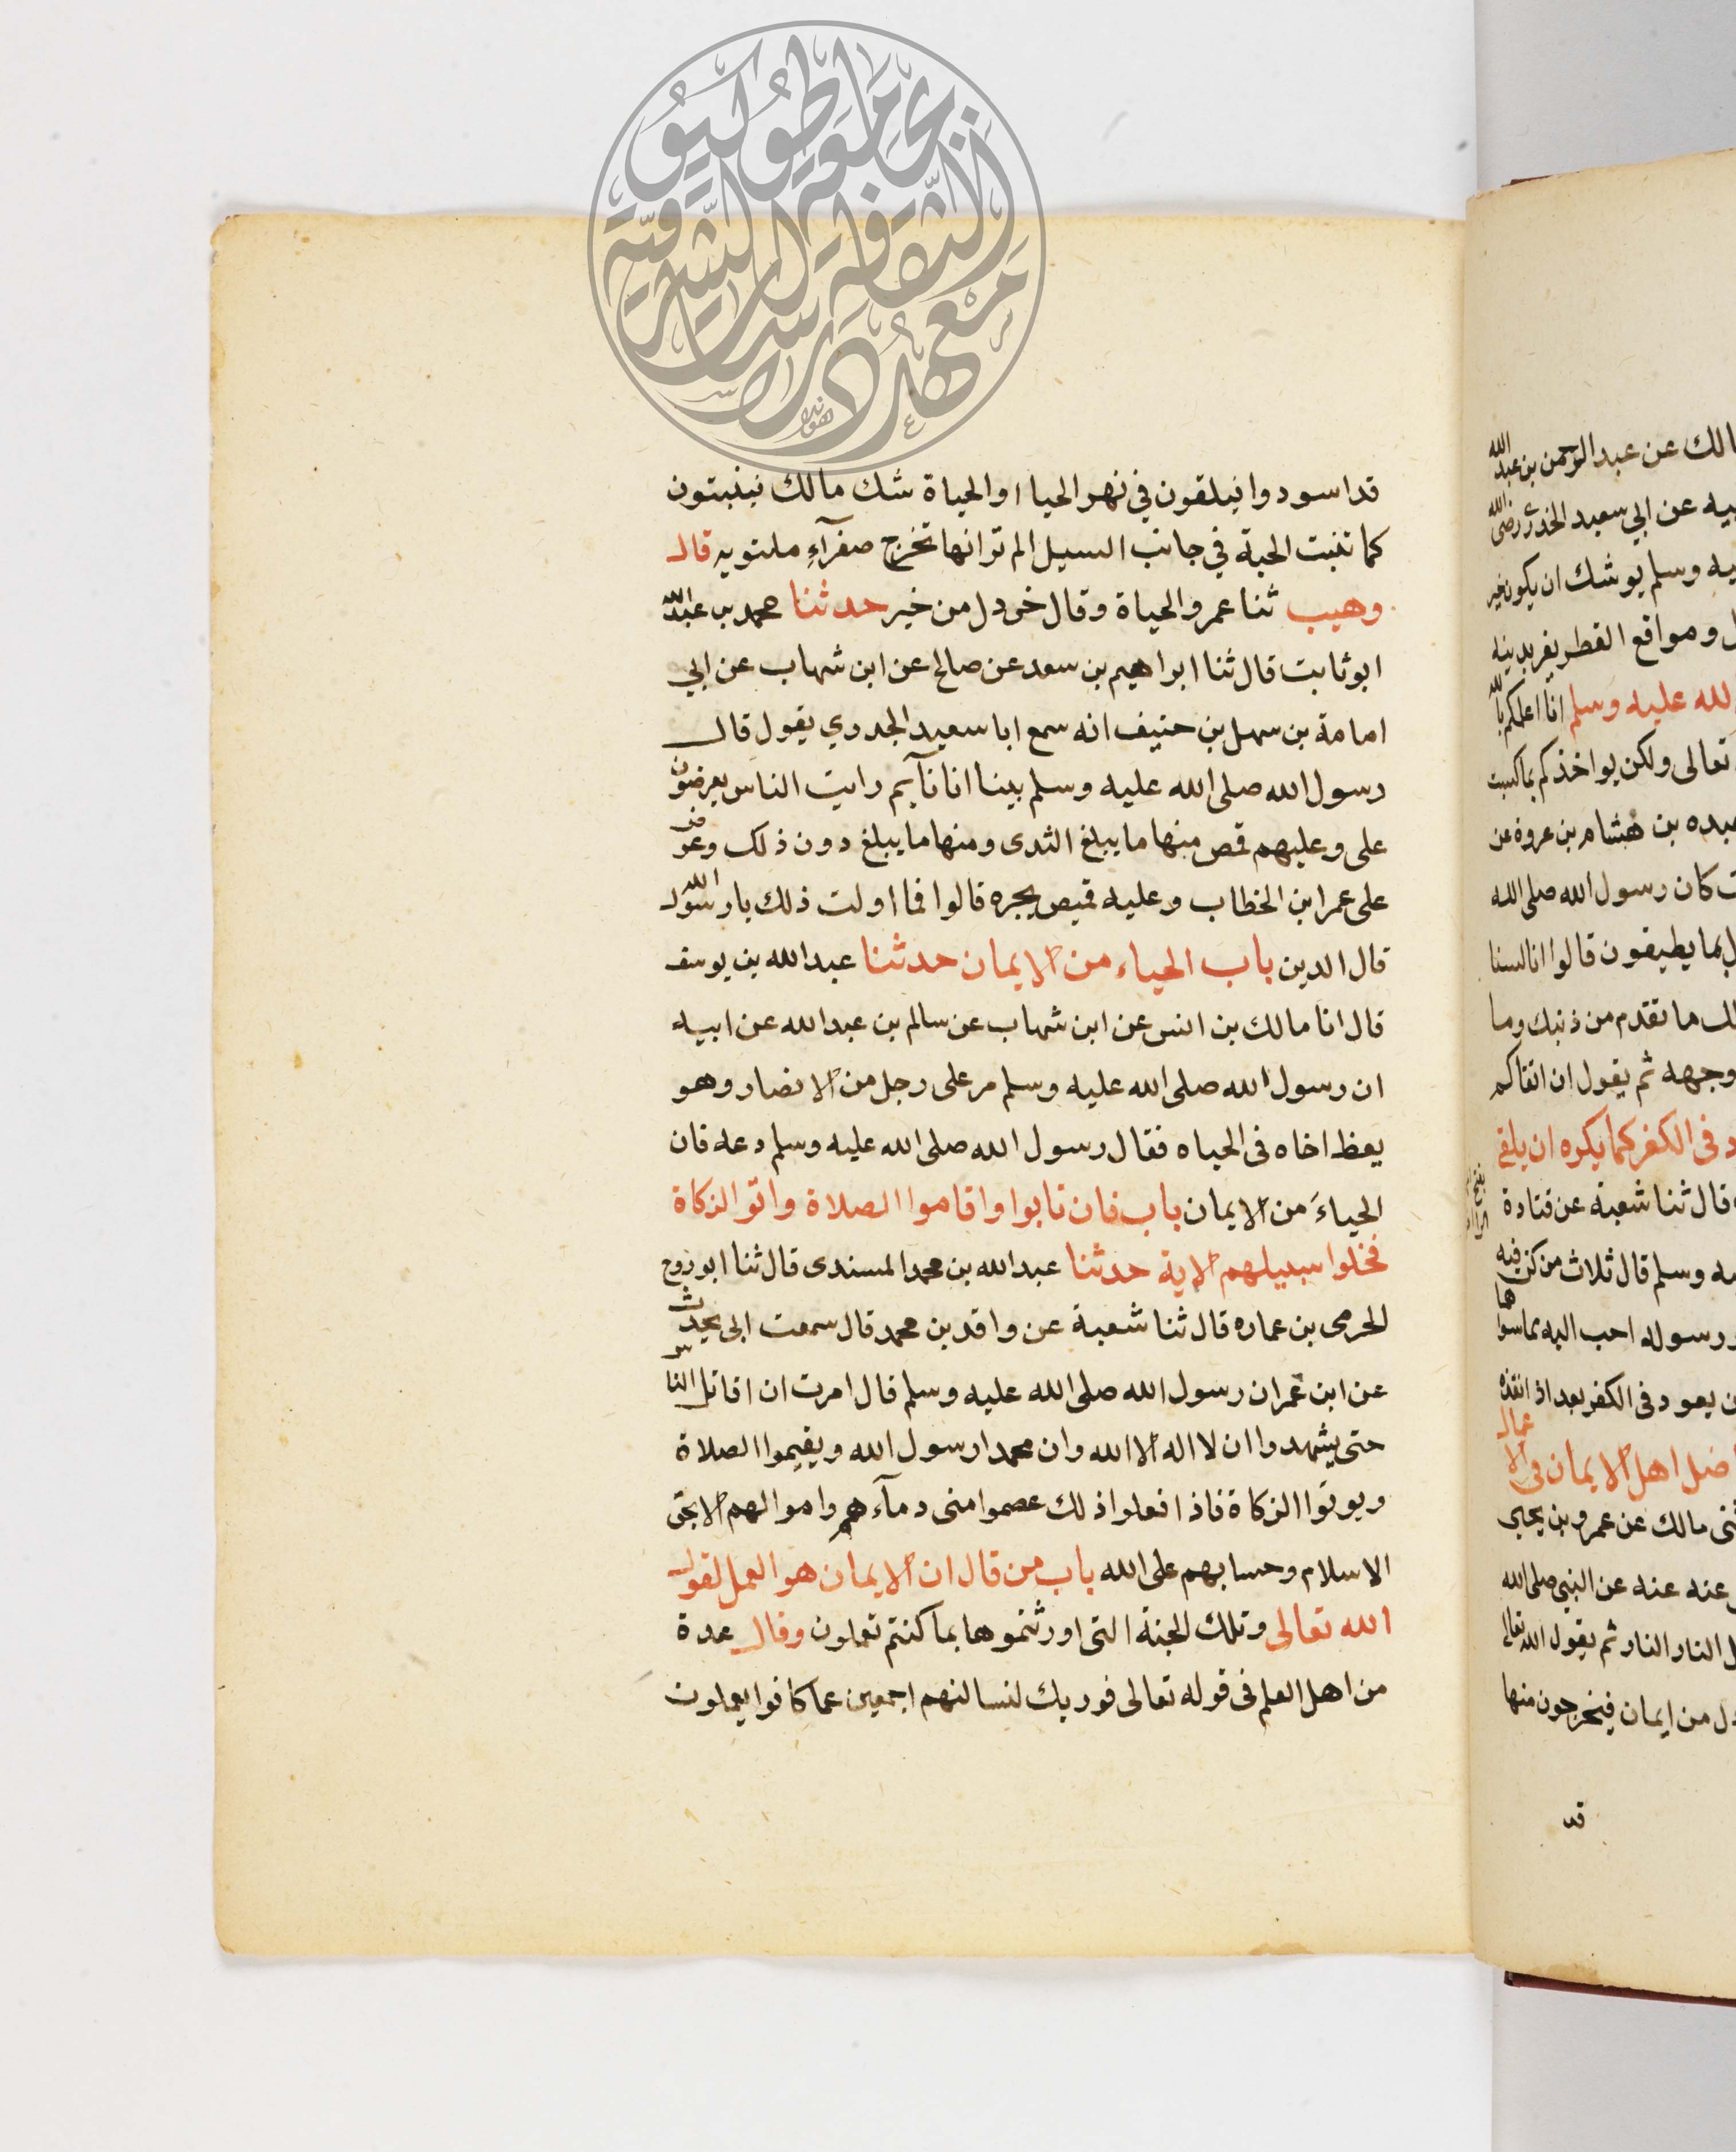 قد اسودوا فيلقون في نهر الحيا او الحياة شك مالك فينبتون
كما تنبت الحبة في جانب السيل الم تر انها تخرج صفرآء ملتويه قال
وهيب ثنا عمرو الحياة وقال خردل من خير حدثنا محمد بن عبد الله
ابو ثابت قال ثنا ابراهيم بن سعد عن صالح عن ابن شهاب عن ابي
امامة بن سهل بن حنيف انه سمع ابا سعيد الجدري يقول قال
رسول الله صلى الله عليه وسلم بينا انا نآيم رايت الناس يعرضون
على وعليهم قمص منها ما يبلغ الثدى ومنها ما يبلغ دون ذلك وعرض
على عمر ابن الخطاب وعليه قميص يجره قالوا فما اولت ذلك يا رسول الله
قال الدين باب الحياء من الايمان حدثنا عبد الله بن يوسف
قال انا مالك بن انس عن ابن شهاب عن سالم بن عبد الله عن ابيه
ان رسول الله صلى الله عليه وسلم مر على رجل من الانصار وهو
يعظ اخاه فى الحياه فقال رسول الله صلى الله عليه وسلم دعه فان
الحياءَ من الايمان باب فان تابوا واقاموا الصلاة واتو الزكاة
فخلوا سبيلهم الاية حدثنا عبد الله بن محمد المسندى قال ثنا ابو روح
الحرمى بن عماره قال ثنا شعبة عن واقد بن محمد قال سمعت ابى يحدث
عن ابن عمر ان رسول الله صلى الله عليه وسلم قال امرت ان اقاتل الناس
حتى يشهدوا ان لا اله الا الله وان محمدا رسول الله ويقيموا الصلاة
ويوتوا الزكاة فاذا فعلوا ذلك عصموا منى دمآءهم واموالهم الا بحق
الاسلام وحسابهم على الله باب من قال ان الايمان هو العمل لقول
الله تعالى وتلك الجنة التى اورثتموها بما كنتم تعملون وقال عدة
من اهل العلم فى قوله تعالى فوربك لنسالنهم اجمعين عما كانوا يعملون
مالك عن عبد الرحمن بن عبد الله
ابيه عن ابي سعيد الخدرى رضى الله
عليه وسلم يوشك ان يكون خير
ومواقع القطر يفر بدينه
الله عليه وسلم انا اعلمكم بالله
تعالى ولكن يواخذكم بما كسبت
عبده بن هشام بن عروة عن
كان رسول الله صلى الله
بما يطيقون قالوا انا لسنا
لك ما تقدم من ذنبك وما
وجهه ثم يقول ان اتقاكم
فى الكفر كما يكره ان يلقى
قال ثنا شعبة عن قتادة
وسلم قال ثلاث من كن فيه
ورسوله احب اليه مما سواها
يعود فى الكفر بعد اذ انقذه
اهل الايمان فى الاعمال
مالك عن عمرو بن يحيى
عنه عن النبى صلى الله
النار النار ثم يقول الله تعالى
من ايمان فيخرجون منها
قد
معهد دراسات الثقافة الشرقية بجامعة طوكيو